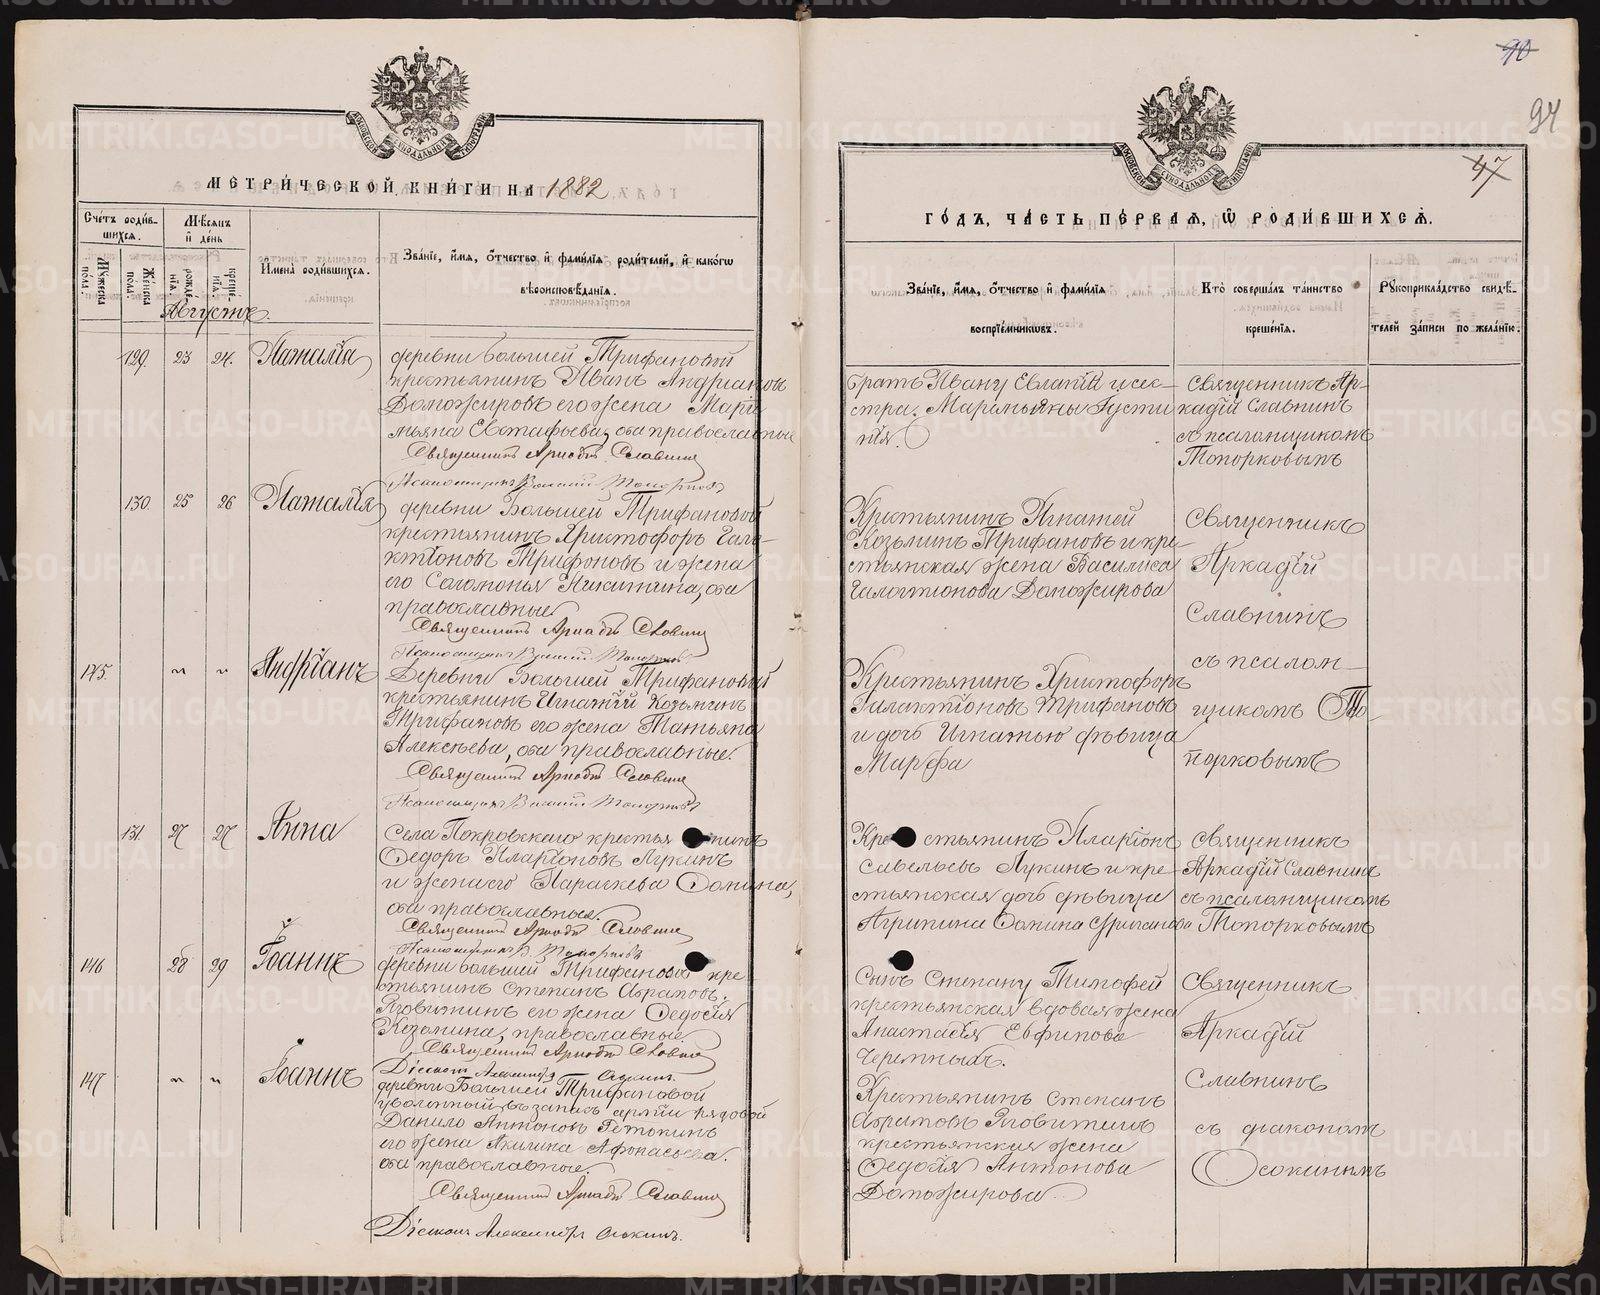 МЕТРИ́ЧЕСКОЙ КНИ́ГИ НА 1882
Сче́тъ роди́в-
шихся.
Мѣсяцъ
и день
Му́жеска
по́ла.
Же́нска
по́ла.
рожде́-
нїя.
креще́-
нїя.
И҆мена̀ роди́вшихся.
Зва́нїе, и҆́мя, о҆́тчество и҆ фами́лїя роди́телей, и҆ како́гѡ
вѣроисповѣ́данїя.
Августъ.
129. 23 24. Наталія
деревни Большей Трифановой
крестьянинъ Иванъ Андріановъ
Доможировъ его жена Маре
мьяна Евстафьева, оба православные
Священникъ Аркадій Славнинъ
Псаломщикъ Василій Топорковъ
130. 25 26 Наталія
деревни Большей Трифановой
крестьянинъ Христофоръ Гала-
ктіоновъ Трифоновъ и жена
его Соломонья Никитина, оба
православные
Священникъ Аркадій Славнинъ
Псаломщикъ Василій Топорковъ
145. " " Андріанъ
Деревни Большей Трифановой
крестьянинъ Игнатій Козьминъ
Трифановъ его жена Татьяна
Алексѣева, оба православные.
Священникъ Аркадій Славнинъ
Псаломщикъ Василій Топорковъ
131. 27 27 Анна
Села Покровскаго крестьянинъ
Ѳедоръ Иларіоновъ Лукинъ
и жена его Параскева Ѳомина,
оба православныя.
Священникъ Аркадій Славнинъ
Псаломщикъ В. Топорковъ
146 28 29 Іоаннъ
деревни большей Трифановой кре
стьянинъ Степанъ Абрамовъ
его жена Ѳедосія
Козьмина, православные.
Священникъ Аркадій Славнинъ
Діаконъ Александръ Осокинъ.
147 " " Іоаннъ
деревни Большей Трифановой
уволенный въ запасъ арміи рядовой
Данило Антоновъ
его жена Акилина Афонасьева.
оба православные.
Священникъ Аркадій Славнинъ
Діаконъ Александръ Осокинъ.
90
94
47
ГО́ДЪ, ЧА́СТЬ ПЕ́РВАЯ, Ѡ҆ РОДИ́ВШИХСЯ.
Зва́нїе, и҆́мя, о҆́тчество и҆ фами́лїя
воспрїе́мникѡвъ.
Кто̀ соверша́лъ та́инство
креще́нїя.
Рꙋкоприкла́дство свидѣ́-
телей за́писи по жела́нїю.
братъ Ивану Евлапій и сес-
стра. Маремьяны Густи
нія.
Священникъ Ар-
кадій Славнинъ
съ псаломщикомъ
Топорковымъ
Крестьянинъ Игнатей
Козьминъ Трифановъ и кре-
стьянская жена Василиса
Галактионова Доможирова
Священникъ
Аркадій
Славнинъ
съ псалом-
щикомъ То-
порковымъ
Крестьянинъ Христофоръ
Галактіоновъ Трифановъ
и дочь Игнатью дѣвица
Марѳа
Крестьянинъ Иларіонъ
Савельевъ Лукинъ и кре-
стьянская дочь дѣвица
Агрипина Ѳомина
Священникъ
Аркадій Славнинъ
съ псаломщикомъ
Топорковымъ
Сынъ Степану Тимофей
крестьянская вдовая жена
Анастасія Евфимова
Черемныхъ.
Священникъ
Аркадій
Славнинъ
съ діакономъ
Осокинымъ
Крестьянинъ Степанъ
Абрамовъ
крестьянская жена
Ѳедосія Антонова
Доможирова
METRIKI.GASO-URAL.RU